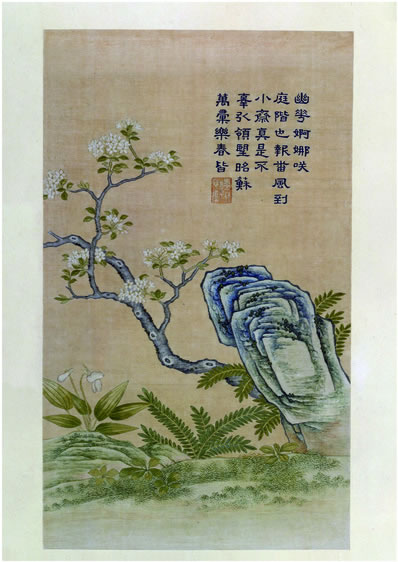 幽花婀娜咲
庭階也報番風到
小齋真是不
辜引領望昭蘇
萬彙樂春皆